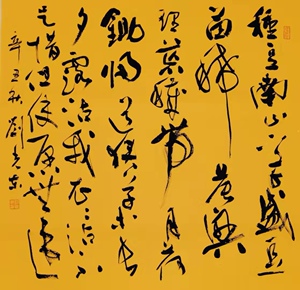 種豆南山下草盛豆
苗稀晨興
理荒穢帶月荷
鋤歸道狹草木長
夕露沾我衣衣沾不
足惜但使願無違
辛丑秋劉